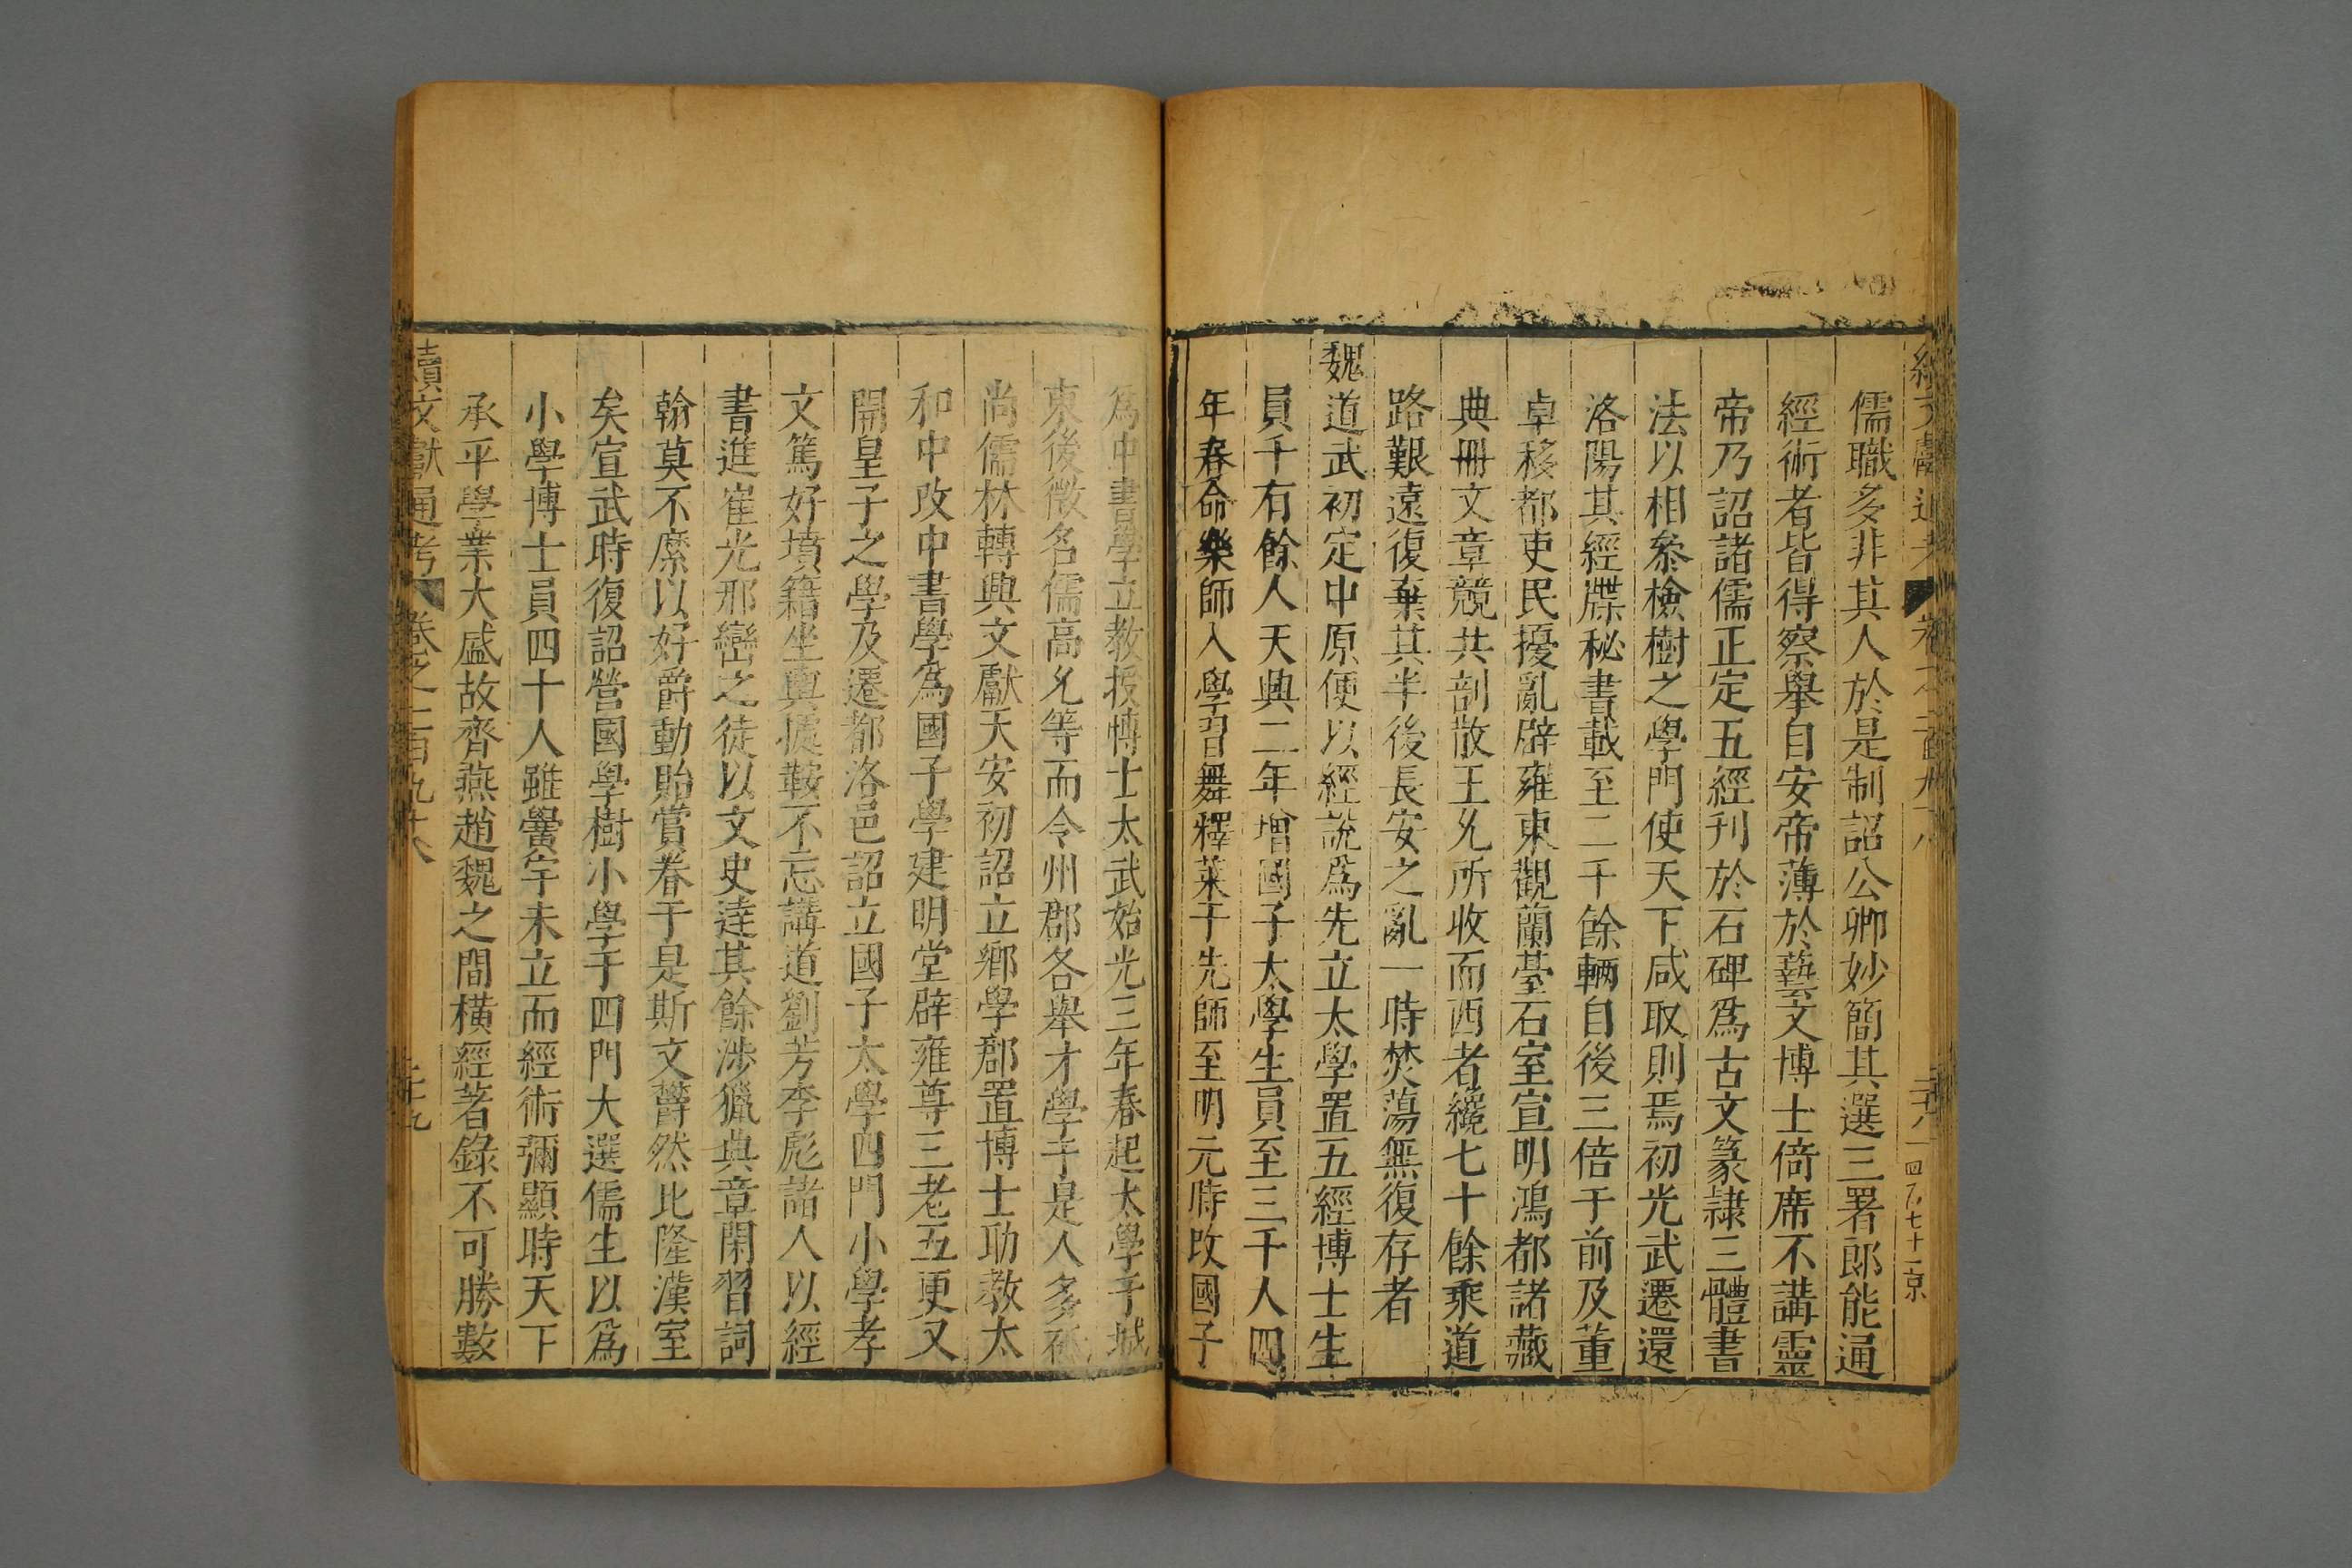 儒職多非其人於是制詔公卿妙簡其選三署郎能通
經術者皆得察舉自安帝薄於藝文博士倚席不講靈
帝乃詔諸儒正定五經刊於石碑為古文篆隷三體書
法以相叅檢樹之學門使天下咸取則焉初光武遷還
洛陽其經牒秘書載至二千餘輛自後三倍于前及董
卓移都吏民擾亂辟雍東觀蘭臺石室宣明鴻都諸藏
典冊文章競共剖散王允所收而西者纔七十餘乘道
路艱遠復棄其半後長安之亂一時焚蕩無復存者
魏道武初定中原便以經說為先立太學置五經博士生
員千有餘人天興二年增國子太學生員至三千人四
年春命樂師入學習舞釋菜于先師至明元時改國子
為中書學立教授博士太武始光三年春起太學于城
東後徵名儒高允等而令州郡各舉才學于是人多砥
尚儒林轉興文獻天安初詔立鄉學郡置博士助教太
和中改中書學為國子學建明堂辟雍尊三老五更又
開皇子之學及遷都洛邑詔立國子太學四門小學孝
文篤好墳籍坐輿據鞍不忘講道劉芳李彪諸人以經
書進崔光邢巒之徒以文史達其餘涉獵典章閑習詞
翰莫不縻以好爵動貽賞眷于是斯文欝然比隆漢室
矣宣武時復詔營國學樹小學于四門大選儒生以為
小學博士員四十人雖黌宇未立而經術彌顯時天下
承平學業大盛故齊燕趙魏之間橫經著錄不可勝數
續文獻通考 卷之二百九十八